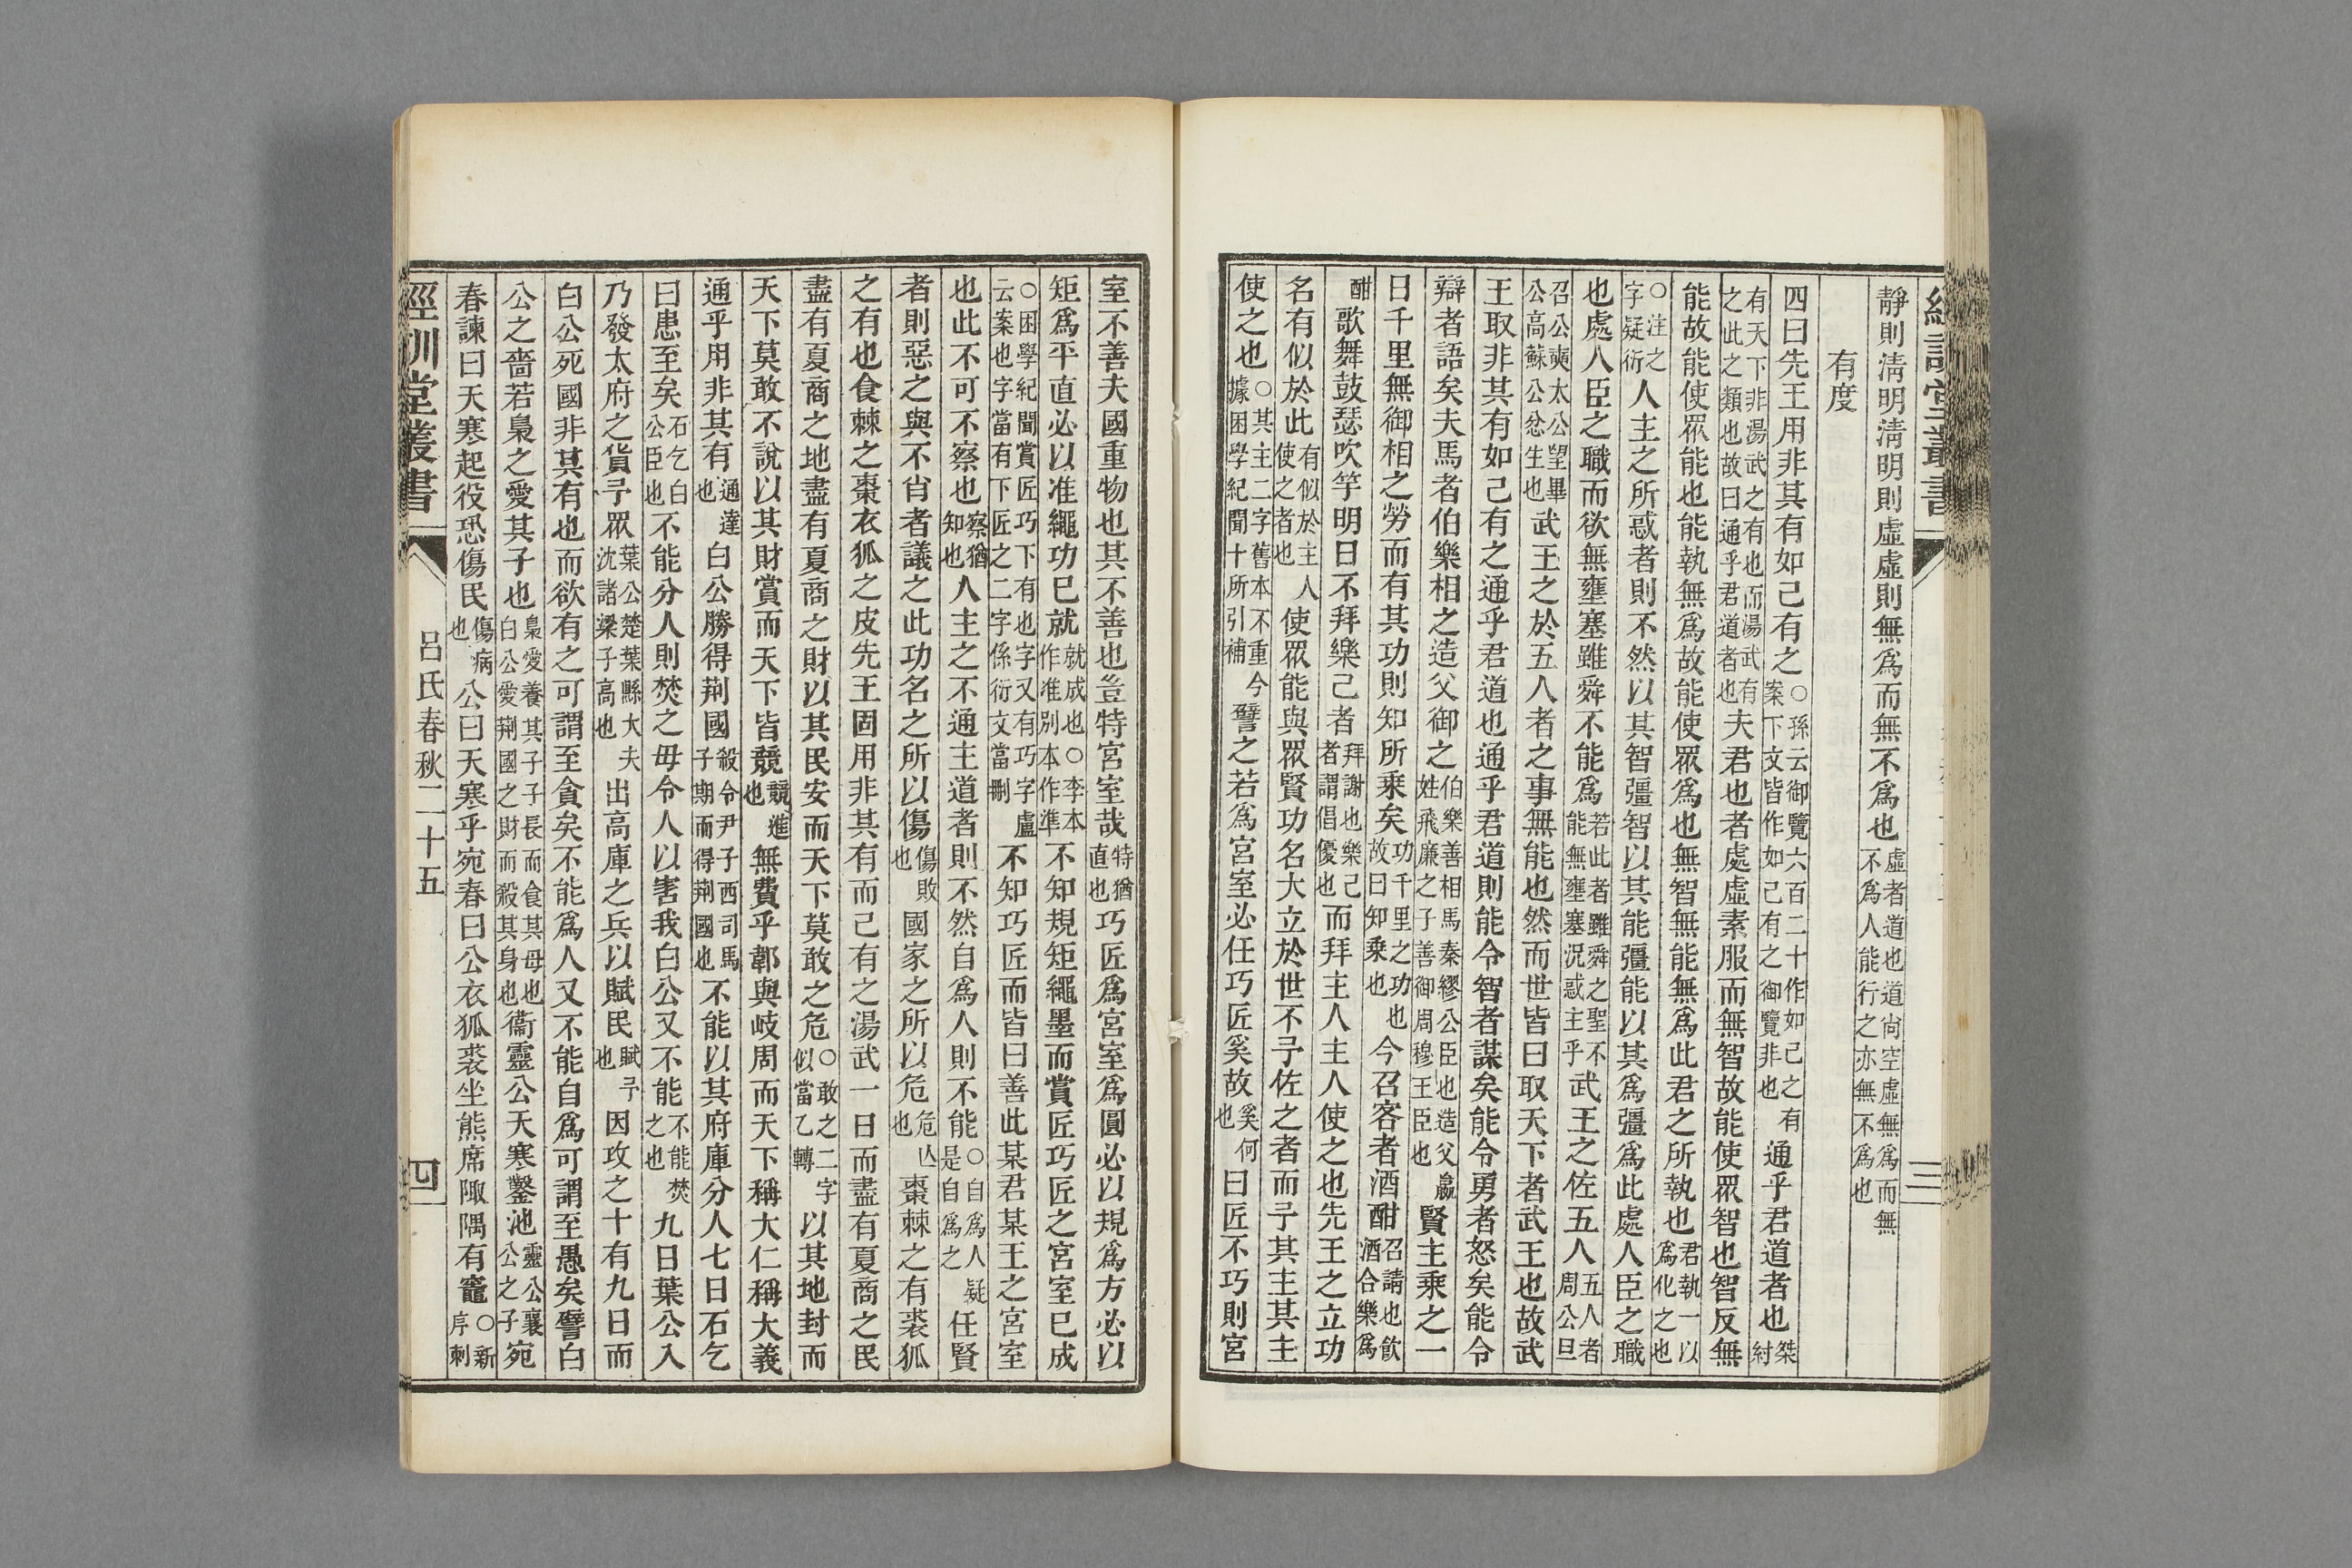 靜則淸明淸明則虛虛則無爲而無不爲也虛者道也道尙空虛無爲而無不爲人能行之亦無不爲也
有度
四曰先王用非其有如己有之○孫云御覽六百二十作如己之有案下文皆作如己有之御覽非也通乎君道者也桀紂
有天下非湯武之有也而湯武有之此之類也故曰通乎君道者也夫君也者處虛素服而無智故能使眾智也智反無
能故能使眾能也能執無爲故能使眾爲也無智無能無爲此君之所執也君執一以爲化之也
○注之字疑衍人主之所惑者則不然以其智彊智以其能彊能以其爲彊爲此處人臣之職
也處人臣之職而欲無壅塞雖舜不能爲若此者雖舜之聖不能無壅塞況惑主乎武王之佐五人五人者周公旦
召公奭太公望畢公高蘇公忿生也武王之於五人者之事無能也然而世皆曰取天下者武王也故武
王取非其有如己有之通乎君道也通乎君道則能令智者謀矣能令勇者怒矣能令
辯者語矣夫馬者伯樂相之造父御之伯樂善相馬秦繆公臣也造父嬴姓飛廉之子善御周穆王臣也賢主乘之一
日千里無御相之勞而有其功則知所乘矣功千里之功也故曰知乘也今召客者酒酣召請也飮酒合樂爲
酣歌舞鼓瑟吹竽明日不拜樂己者拜謝也樂己者謂倡優也而拜主人主人使之也先王之立功
名有似於此有似於主人使之者也使眾能與眾賢功名大立於世不予佐之者而予其主其主
使之也○其主二字舊本不重今據困學紀聞十所引補譬之若爲宮室必任巧匠奚故奚何也曰匠不巧則宮
三
室不善夫國重物也其不善也豈特宮室哉特猶直也巧匠爲宮室爲圓必以規爲方必以
矩爲平直必以准繩功已就就成也○李本作准別本作準不知規矩繩墨而賞匠巧匠之宮室已成
○困學紀聞賞匠巧下有也字又有巧字盧云案也字當有下匠之二字係衍文當刪不知巧匠而皆曰善此某君某王之宮室
也此不可不察也察猶知也人主之不通主道者則不然自爲人則不能○自爲人疑是自爲之任賢
者則惡之與不肖者議之此功名之所以傷傷敗也國家之所以危危亾也棗棘之有裘狐
之有也食棘之棗衣狐之皮先王固用非其有而己有之湯武一日而盡有夏商之民
盡有夏商之地盡有夏商之財以其民安而天下莫敢之危○敢之二字似當乙轉以其地封而
天下莫敢不說以其財賞而天下皆競競進也無費乎郼與岐周而天下稱大仁稱大義
通乎用非其有通達也白公勝得荆國殺令尹子西司馬子期而得荆國也不能以其府庫分人七日石乞
曰患至矣石乞白公臣也不能分人則焚之毋令人以害我白公又不能不能焚之也九日葉公入
乃發太府之貨予眾葉公楚葉縣大夫沈諸梁子高也出高庫之兵以賦民賦予也因攻之十有九日而
白公死國非其有也而欲有之可謂至貪矣不能爲人又不能自爲可謂至愚矣譬白
公之嗇若梟之愛其子也梟愛養其子子長而食其母也白公愛荆國之財而殺其身也衞靈公天寒鑿池靈公襄公之子宛
春諫曰天寒起役恐傷民傷病也公曰天寒乎宛春曰公衣狐裘坐熊席陬隅有竈○新序刺
經訓堂叢書
呂氏春秋二十五
四